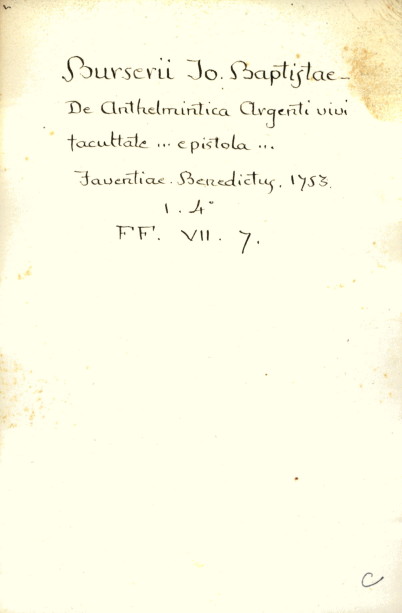 Burserii Jo. Baptistae-
De Anthelmintica Argenti vivi
facultate ... epistola ...
Faventiae. Benedictus. 1753.
1. 4°
FF. VII. 7.
C